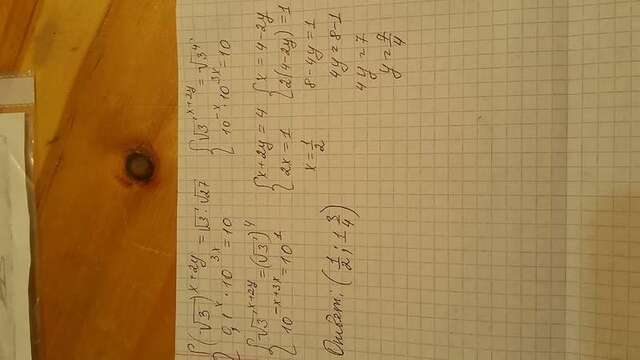 {(√3)^(x+2y) = √3 · √27
0,1^x · 10^(3x) = 10
{√3^(x+2y) = √3^4
10^(-x) · 10^(3x) = 10
{√3^(x+2y) = (√3)^4
10^(-x+3x) = 10^1
{x+2y = 4
2x = 1
x = 1/2
{x = 4-2y
2(4-2y) = 1
8-4y = 1
4y = 8-1
4y = 7
y = 7/4
Ответ: (1/2; 1 3/4)